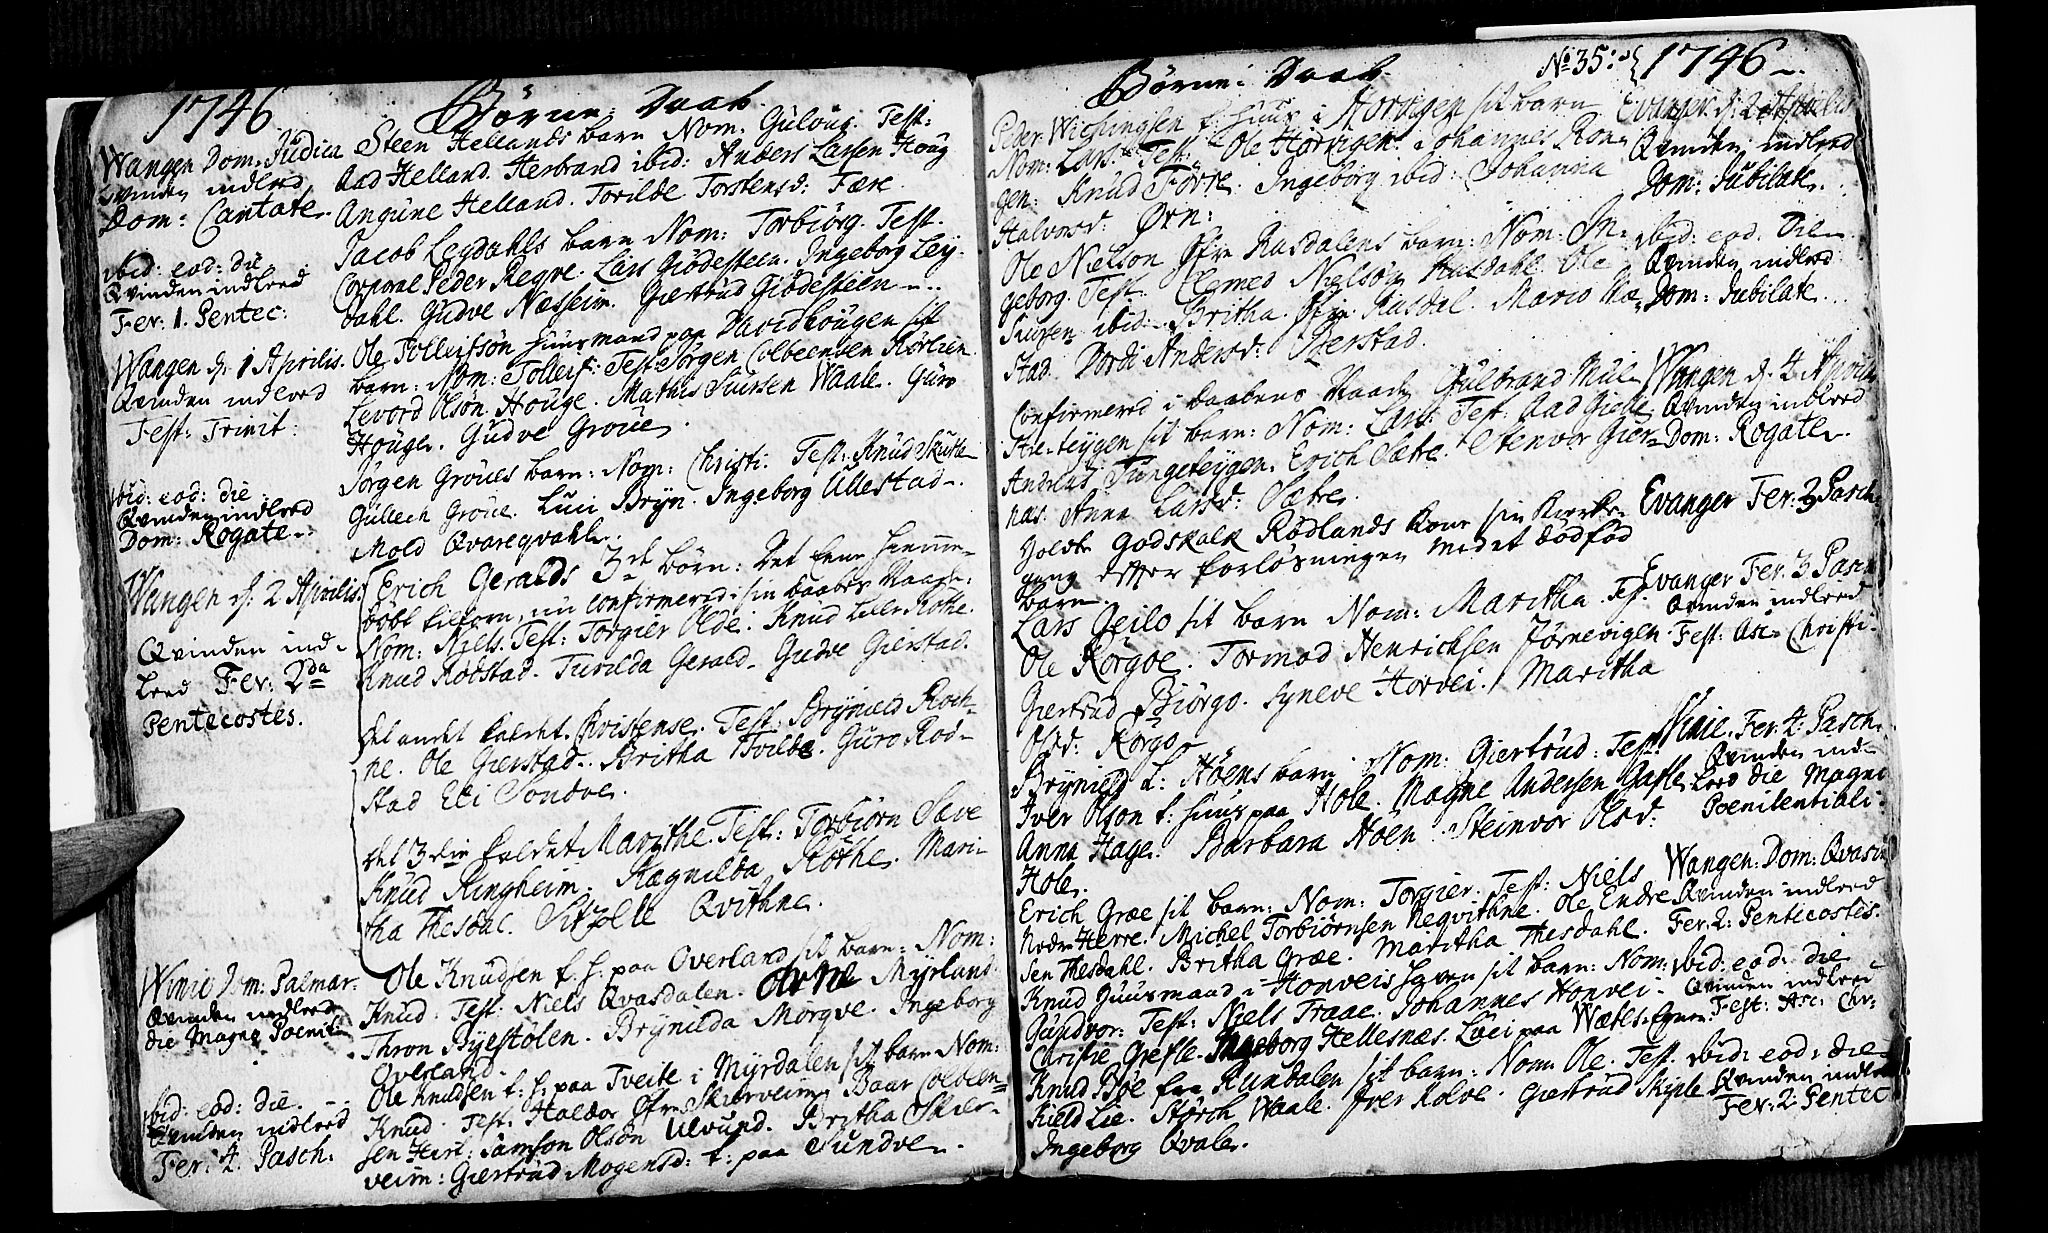 1746 Børne: Daab.
Wangen Dom. Judica
Qvinden indleed
Dom: Cantate.
Steen Hellands barn Nom: Guloug. Test:
Aad Helland. Herbrand ibid: Anders Larsen Houg
Angune Helland. Torilde Torstensd: Fære.
ibid: eod: die
Qvinden indleed
Fer: 1. Pentec:
Jacob Leydahls barn Nom: Torbiørg. Test.
Corporal Peder Regve. Lars Giødesteen. Ingeborg Ley-
dahl. Gudve Næsheim. Giertrud Giødesteen
Wangen d. 1 Aprilis.
Qvinden indleed
Fest: Trinit:
Ole Tolleifsøn huusmand paa Davidhougen sit
barn: Nom: Tolleif: Test: Jørgen Colbeensen
Levord Olsøn Houge. Mathis Siursen Waale. Guro
Houge. Gudve Groue
ibid: eod: die:
Qvinden indleed
Dom: Rogate
Jørgen Groues barn: Nom: Christi. Test: Knud Skutle
Gullech Groue. Luci Bryn. Ingeborg Ullestad.
Mold Qvareqvahle.
Wangen d. 2 Aprilis.
Qvinden ind-
leed Fer: 2da
Pentecostes.
Erich Geralds 3de børn: Det eene hiemme-
døbt tilforn, nu confirmered i sin daabes Naade:
Nom: Niels. Test: Torgier Olde. Knud Lille Røthe.
Knud Rødstad. Turilda Gerald. Gudve Gierstad.
Det andet kaldet Christense. Test: Bryniel Roch-
ne. Ole Gierstad. Britha Tvilde. Guro Rød-
stad Eli Sondve.
Det 3die kaldet Marithe. Test: Torbiørn Sæve
Knud Ringheim. Ragnilda Røthe. Mari-
tha Thesdal. Sitzelle Qvithne.
Winie Dom: Palmar.
Qvinden indleed
die Magne Poenit
Ole Knudsen t. h. paa Overland sit barn: Nom:
Knud. Test: Niels Qvasdalen. Arne Myrland
Thron Byestølen. Brynilda Mørqve. Ingeborg
Overland.
ibid: eod: die.
Qvinden indleed
Fer: 4. Pasch:
Ole Knudsen t: h: paa Tveite i Myrdalen sit barn Nom:
Knud. Test: Haldor Øfre Skierveim. Baar Colben-
sen Hirt: Samson Olsøn Ulvund. Britha Skier-
veim: Giertrud Mogensd: t: paa Sundve.
Børne: Daab. No 35: 1746
Peder t. huus i Horvigen sit barn
Nom: Lars. Test: Ole Horvigen. Johannes Ron-
gen: Knud Førre. Ingeborg ibid: Johanna
Halvorsd: Ørn:
Evanger d. 2 Aprilis
Qvinden indleed
Dom: Jubilate.
Ole Nielson Øfre Rasdalens barn: Nom: In-
geborg. Test: Clemed Nielsøn Rasdahl. Ole
Siursen ibid. Britha Øfre Rasdal. Mario
stad. Dordi Andersd: Bierstad.
ibid: eod: die
Qvinden indleed
Dom: Jubilate
Confirmered i daabens Naade Gulbrand
teygen sit barn: Nom: Lars: Test: Aad Gielle
Andreas Tungeteygen. Erich Sætre. Stenvor Gier-
nas. Anna Larsd: Sætre.
Wangen d. 4 Aprilis
Qvinden indleed
Dom: Rogate.
Holdt Godskalk Rødlands kone sin Kirke-
gang efter forløsningen med et dødfød
barn.
Evanger Fer. 3 Pasch
Lars Geilo sit barn Nom: Maritha. Test.
Ole Rørgoe. Tormod Henrichsen Jørnevigen.
Giertrud Biørgo. Syneve Horvei. Maritha
Olsd: Rørgo
Evanger Fer. 3. Pasch
Qvinden indleed
Fest: Asc: Christi.
Bryniel L: Høens barn. Nom: Giertrud: Test.
Iver Olson t. huus paa Hole. Magne Andersen Gafle
Anna Hage. Barbara Høen. Steinvor Olsd:
Hole.
Winie. Fer. 4. Pasch.
Qvinden ind-
leed die Magne
Poenitentiali:
Erich Græe sit barn: Nom: Torgier. Test: Niels
Nedre Herre. Michel Torbiørnsen Regvithne. Ole Endre-
sen Thesdahl. Britha Græe. Maritha Thesdahl.
Wangen: Dom: Qvasim
Qvinden indleed
Fer. 2: Pentecostes.
Knud Huusmand i Honveishaven sit barn: Nom:
Gundvor: Test: Niels Traae. Johannes Honvei.
Christie Giefle. Ingeborg Hellesnæs. Luci paa
ibid: eod: die
Qvinden indleed
Fest: Asc: Chr:
Knud Bøe fra Rundalen sit barn: Nom: Ole. Test.
Kield Lie. Størch Waale. Iver Rolve. Giertrud Skiple
Ingeborg Qvale.
ibid: eod: die
Qvinden indleed
Fer: 2: Pentec